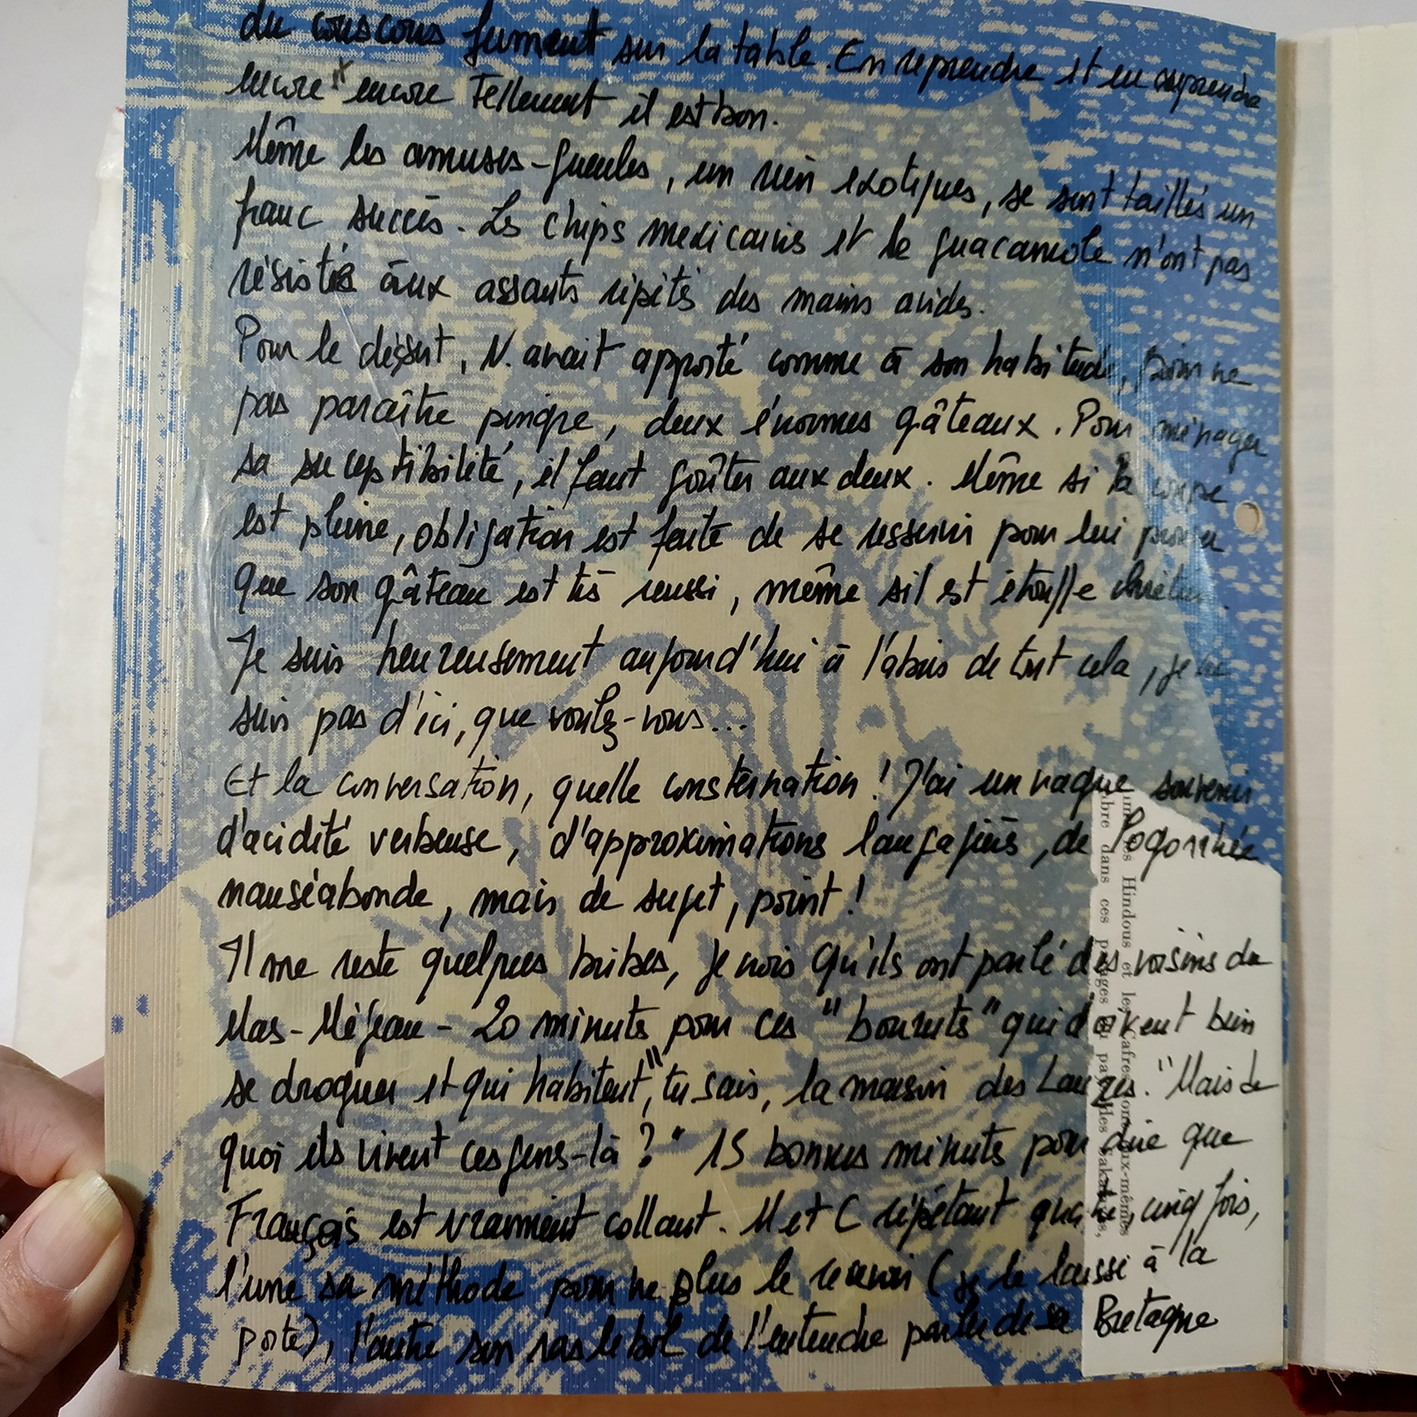 du couscous fument sur la table. En reprendre et en reprendre
encore et encore Tellement il est bon.
Même les amuses-gueules, un rien exotiques, se sont taillés un
franc succès. Les chips mexicains et le guacamole n'ont pas
résistés aux assauts répétés des mains avides.
Pour le dessert, N. avait apporté comme à son habitude, pour ne
pas paraître pingre, deux énormes gâteaux. Pour ménager
sa susceptibilité, il faut goûter aux deux. Même si la coupe
est pleine, obligation est faite de se resservir pour lui prouver
que son gâteau est très réussi, même s'il est étouffe chrétien.
Je suis heureusement aujourd'hui à l'abris de tout cela, je ne
suis pas d'ici, que voulez-vous...
Et la conversation, quelle consternation ! J'ai un vague souvenir
d'acidité verbeuse, d'approximations langagières, de logorrhée
nauséabonde, mais de sujet, point !
Il me reste quelques bribes, je crois qu'ils ont parlé des voisins du
Mas-Méjean - 20 minutes pour ces "bonnets" qui doivent bien
se droguer et qui habitent, "tu sais, la maison des Lauzes." Mais de
quoi ils vivent ces gens-là ?" 15 bonnes minutes pour dire que
François est vraiment collant. M et C répétant quatre, cinq fois,
l'une sa méthode pour ne plus le recevoir (je le laisse à la
porte), l'autre son ras le bol de l'entendre parler de sa Bretagne
Hindous et les Cafres
bre dans ces